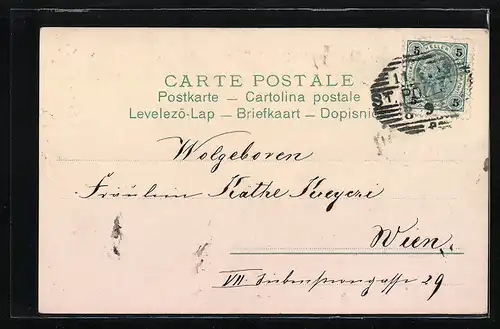 CARTE POSTALE
Postkarte — Cartolina postale
Levelező-Lap — Briefkaart — Dopisnic
5 5
5
ST. PÖ
8 9
Wolgeboren
Fräulein Käthe
Wien.
VII. Siebensterngasse 29